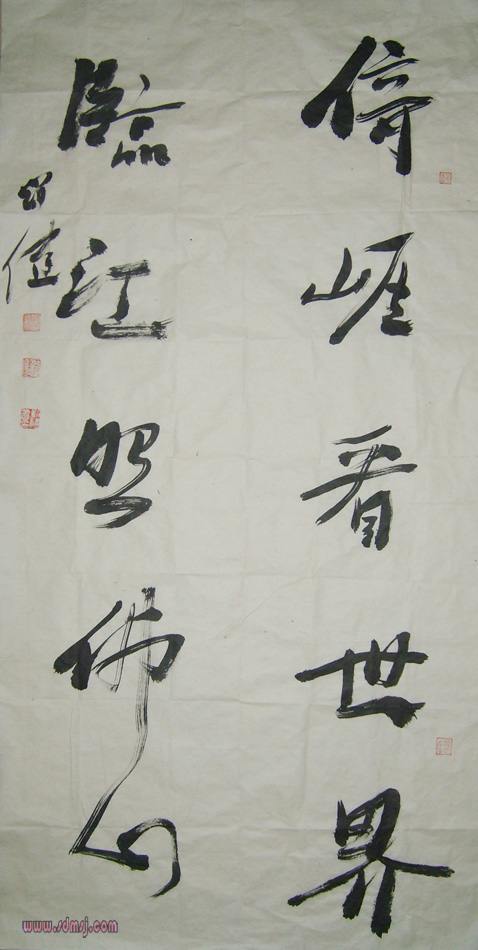 倚崖看世界
临江照佛心
www.sdmsj.com